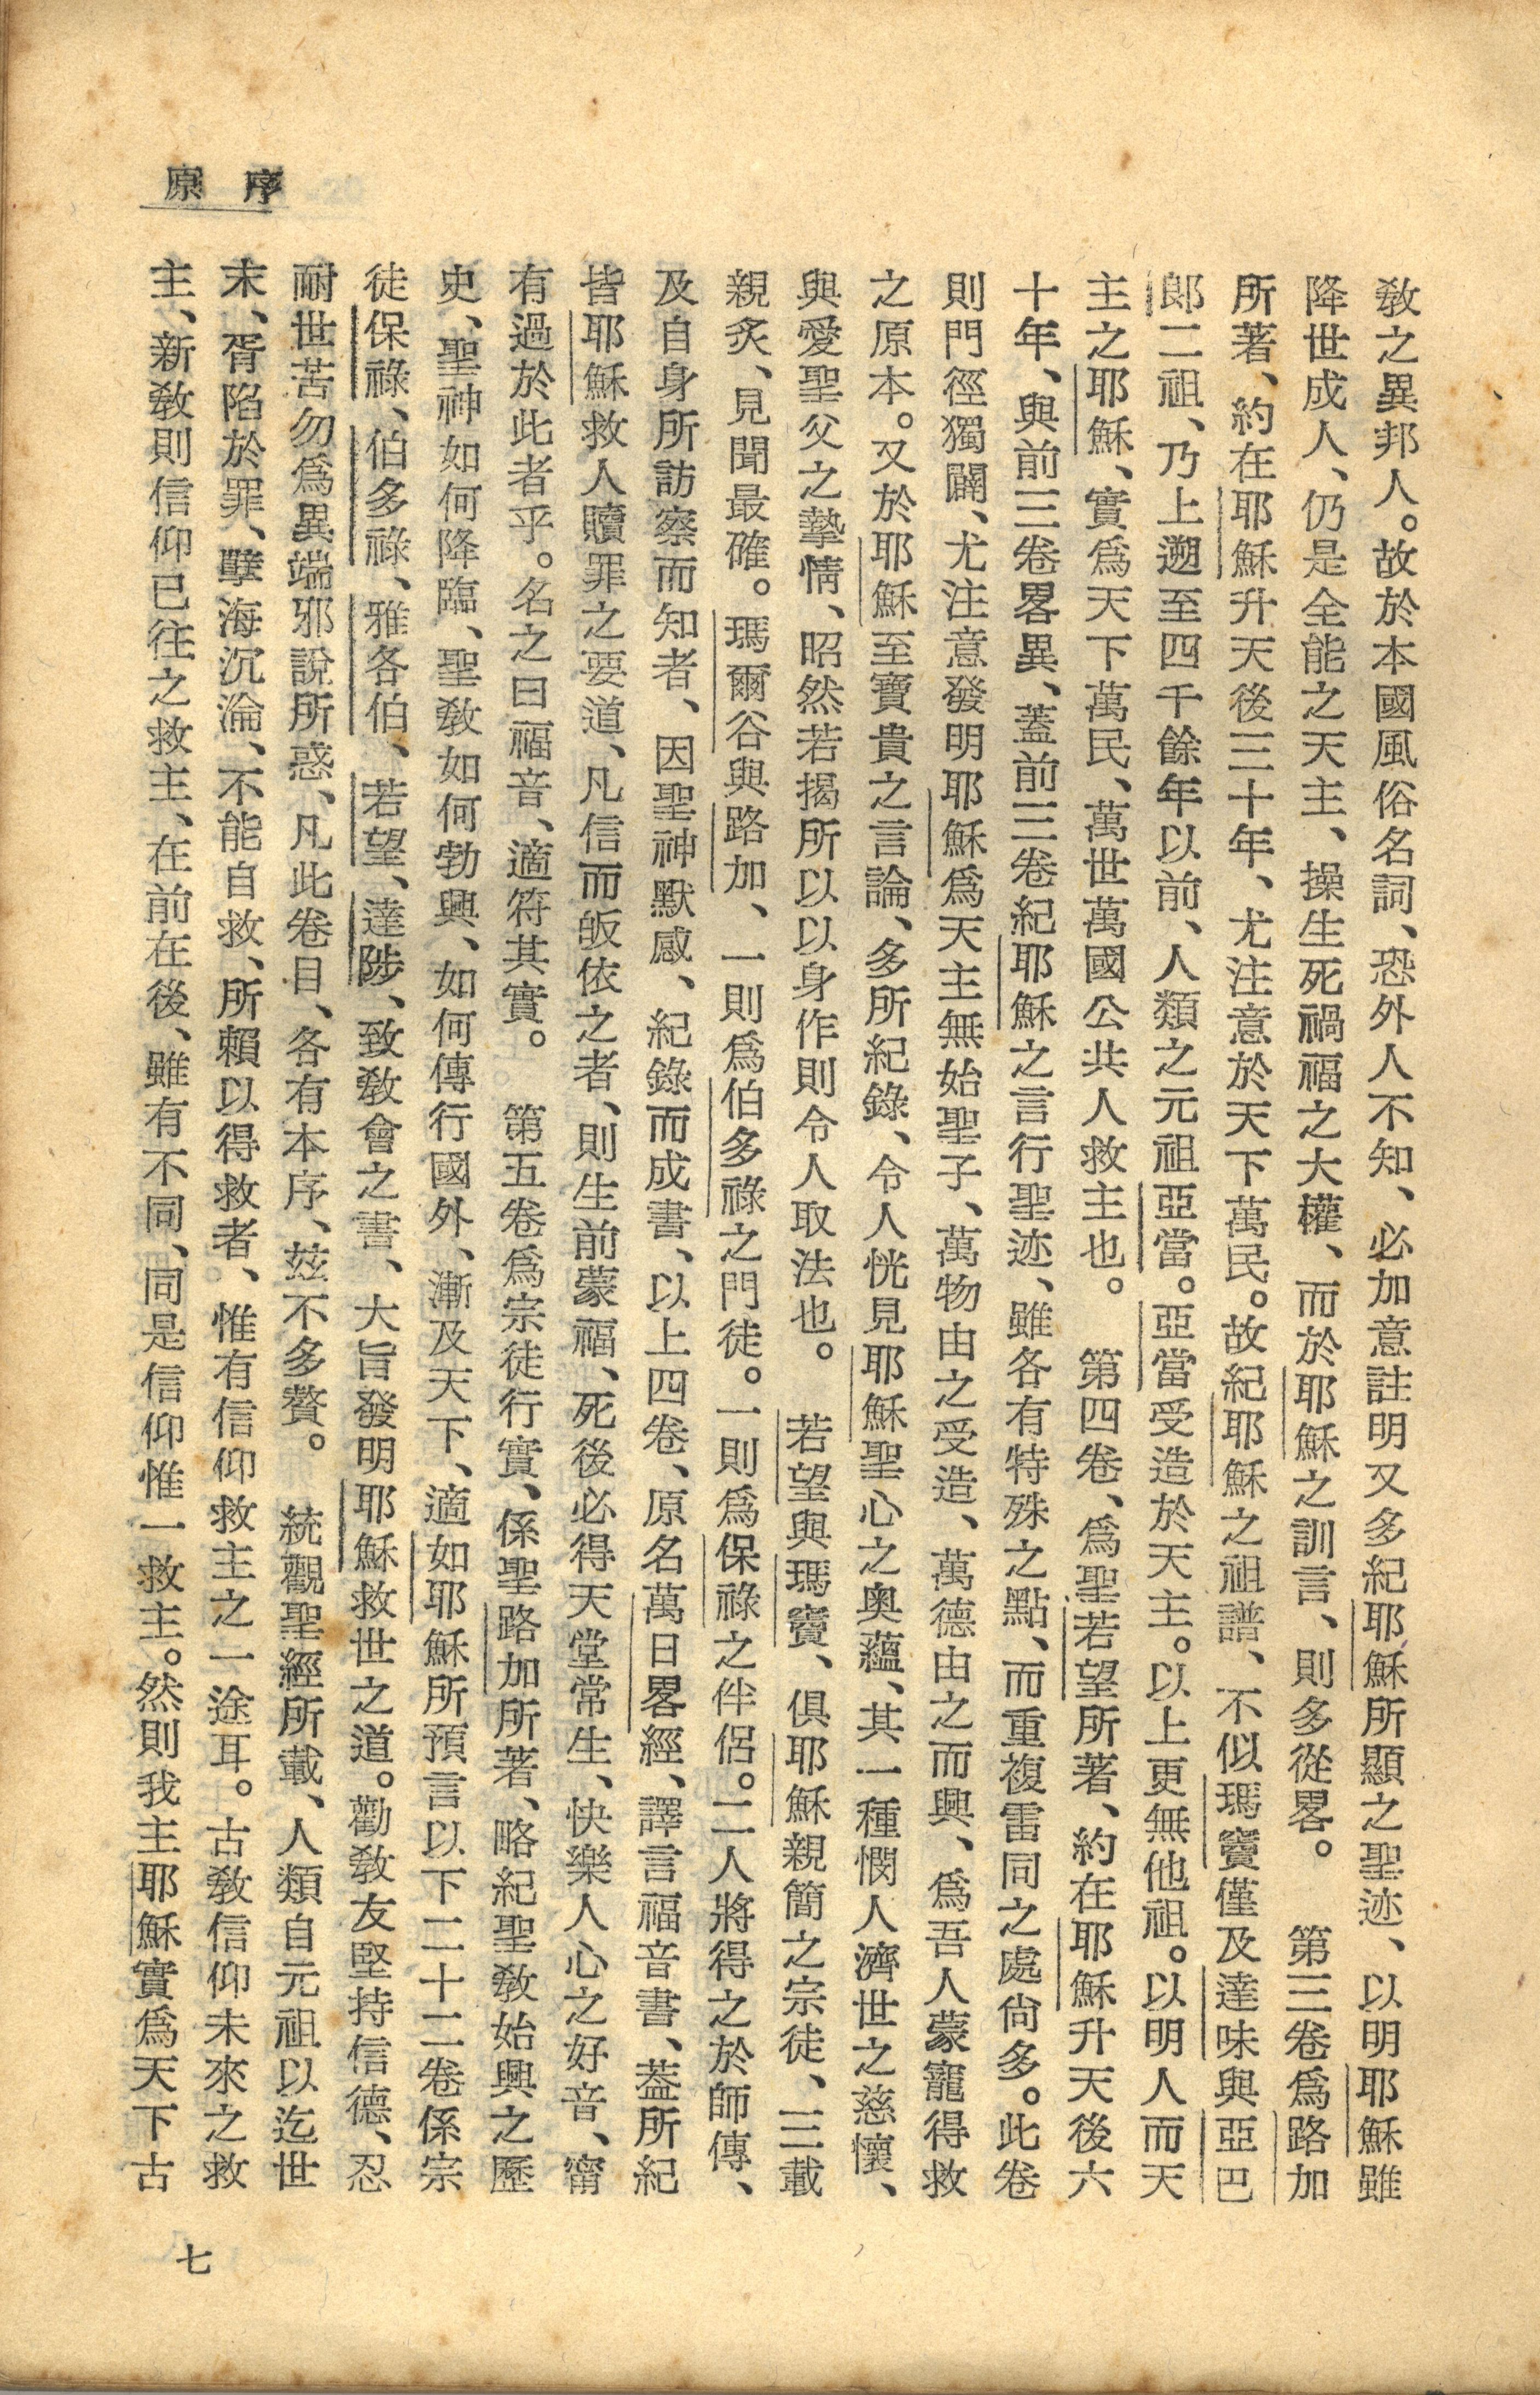 原序
教之異邦人。故於本國風俗名詞、恐外人不知、必加意註明又多紀耶穌所顯之聖迹、以明耶穌雖
降世成人、仍是全能之天主、操生死禍福之大權、而於耶穌之訓言、則多從畧。　第三卷爲路加
所著、約在耶穌升天後三十年、尤注意於天下萬民。故紀耶穌之祖譜、不似瑪竇僅及達味與亞巴
郎二祖、乃上遡至四千餘年以前、人類之元祖亞當。亞當受造於天主。以上更無他祖。以明人而天
主之耶穌、實爲天下萬民、萬世萬國公共人救主也。　第四卷、爲聖若望所著、約在耶穌升天後六
十年、與前三卷畧異、蓋前三卷紀耶穌之言行聖迹、雖各有特殊之點、而重複雷同之處尙多。此卷
則門徑獨闢、尤注意發明耶穌爲天主無始聖子、萬物由之受造、萬德由之而興、爲吾人蒙寵得救
之原本。又於耶穌至寶貴之言論、多所紀錄、令人恍見耶穌聖心之奧蘊、其一種憫人濟世之慈懷、
與愛聖父之摯情、昭然若揭所以以身作則令人取法也。　若望與瑪竇、俱耶穌親簡之宗徒、三載
親炙、見聞最確。瑪爾谷與路加、一則爲伯多祿之門徒。一則爲保祿之伴侶。二人將得之於師傳、
及自身所訪察而知者、因聖神默感、紀錄而成書、以上四卷、原名萬日畧經、譯言福音書、蓋所紀
皆耶穌救人贖罪之要道、凡信而皈依之者、則生前蒙福、死後必得天堂常生、快樂人心之好音、甯
有過於此者乎。名之曰福音、適符其實。　第五卷爲宗徒行實、係聖路加所著、略紀聖教始興之歷
史、聖神如何降臨、聖教如何勃興、如何傳行國外、漸及天下、適如耶穌所預言以下二十二卷係宗
徒保祿、伯多祿、雅各伯、若望、達陡、致教會之書、大旨發明耶穌救世之道。勸教友堅持信德、忍
耐世苦勿爲異端邪說所惑、凡此卷目、各有本序、玆不多贅。　統觀聖經所載、人類自元祖以迄世
末、胥陷於罪、孽海沉淪、不能自救、所賴以得救者、惟有信仰救主之一途耳。古教信仰未來之救
主、新教則信仰已往之救主、在前在後、雖有不同、同是信仰惟一救主。然則我主耶穌實爲天下古
七